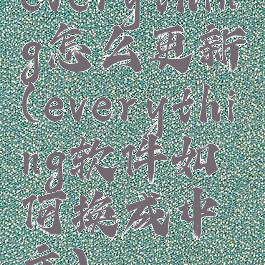 everythin
g怎么更新
(everythi
ng软件如
何换成中
文)